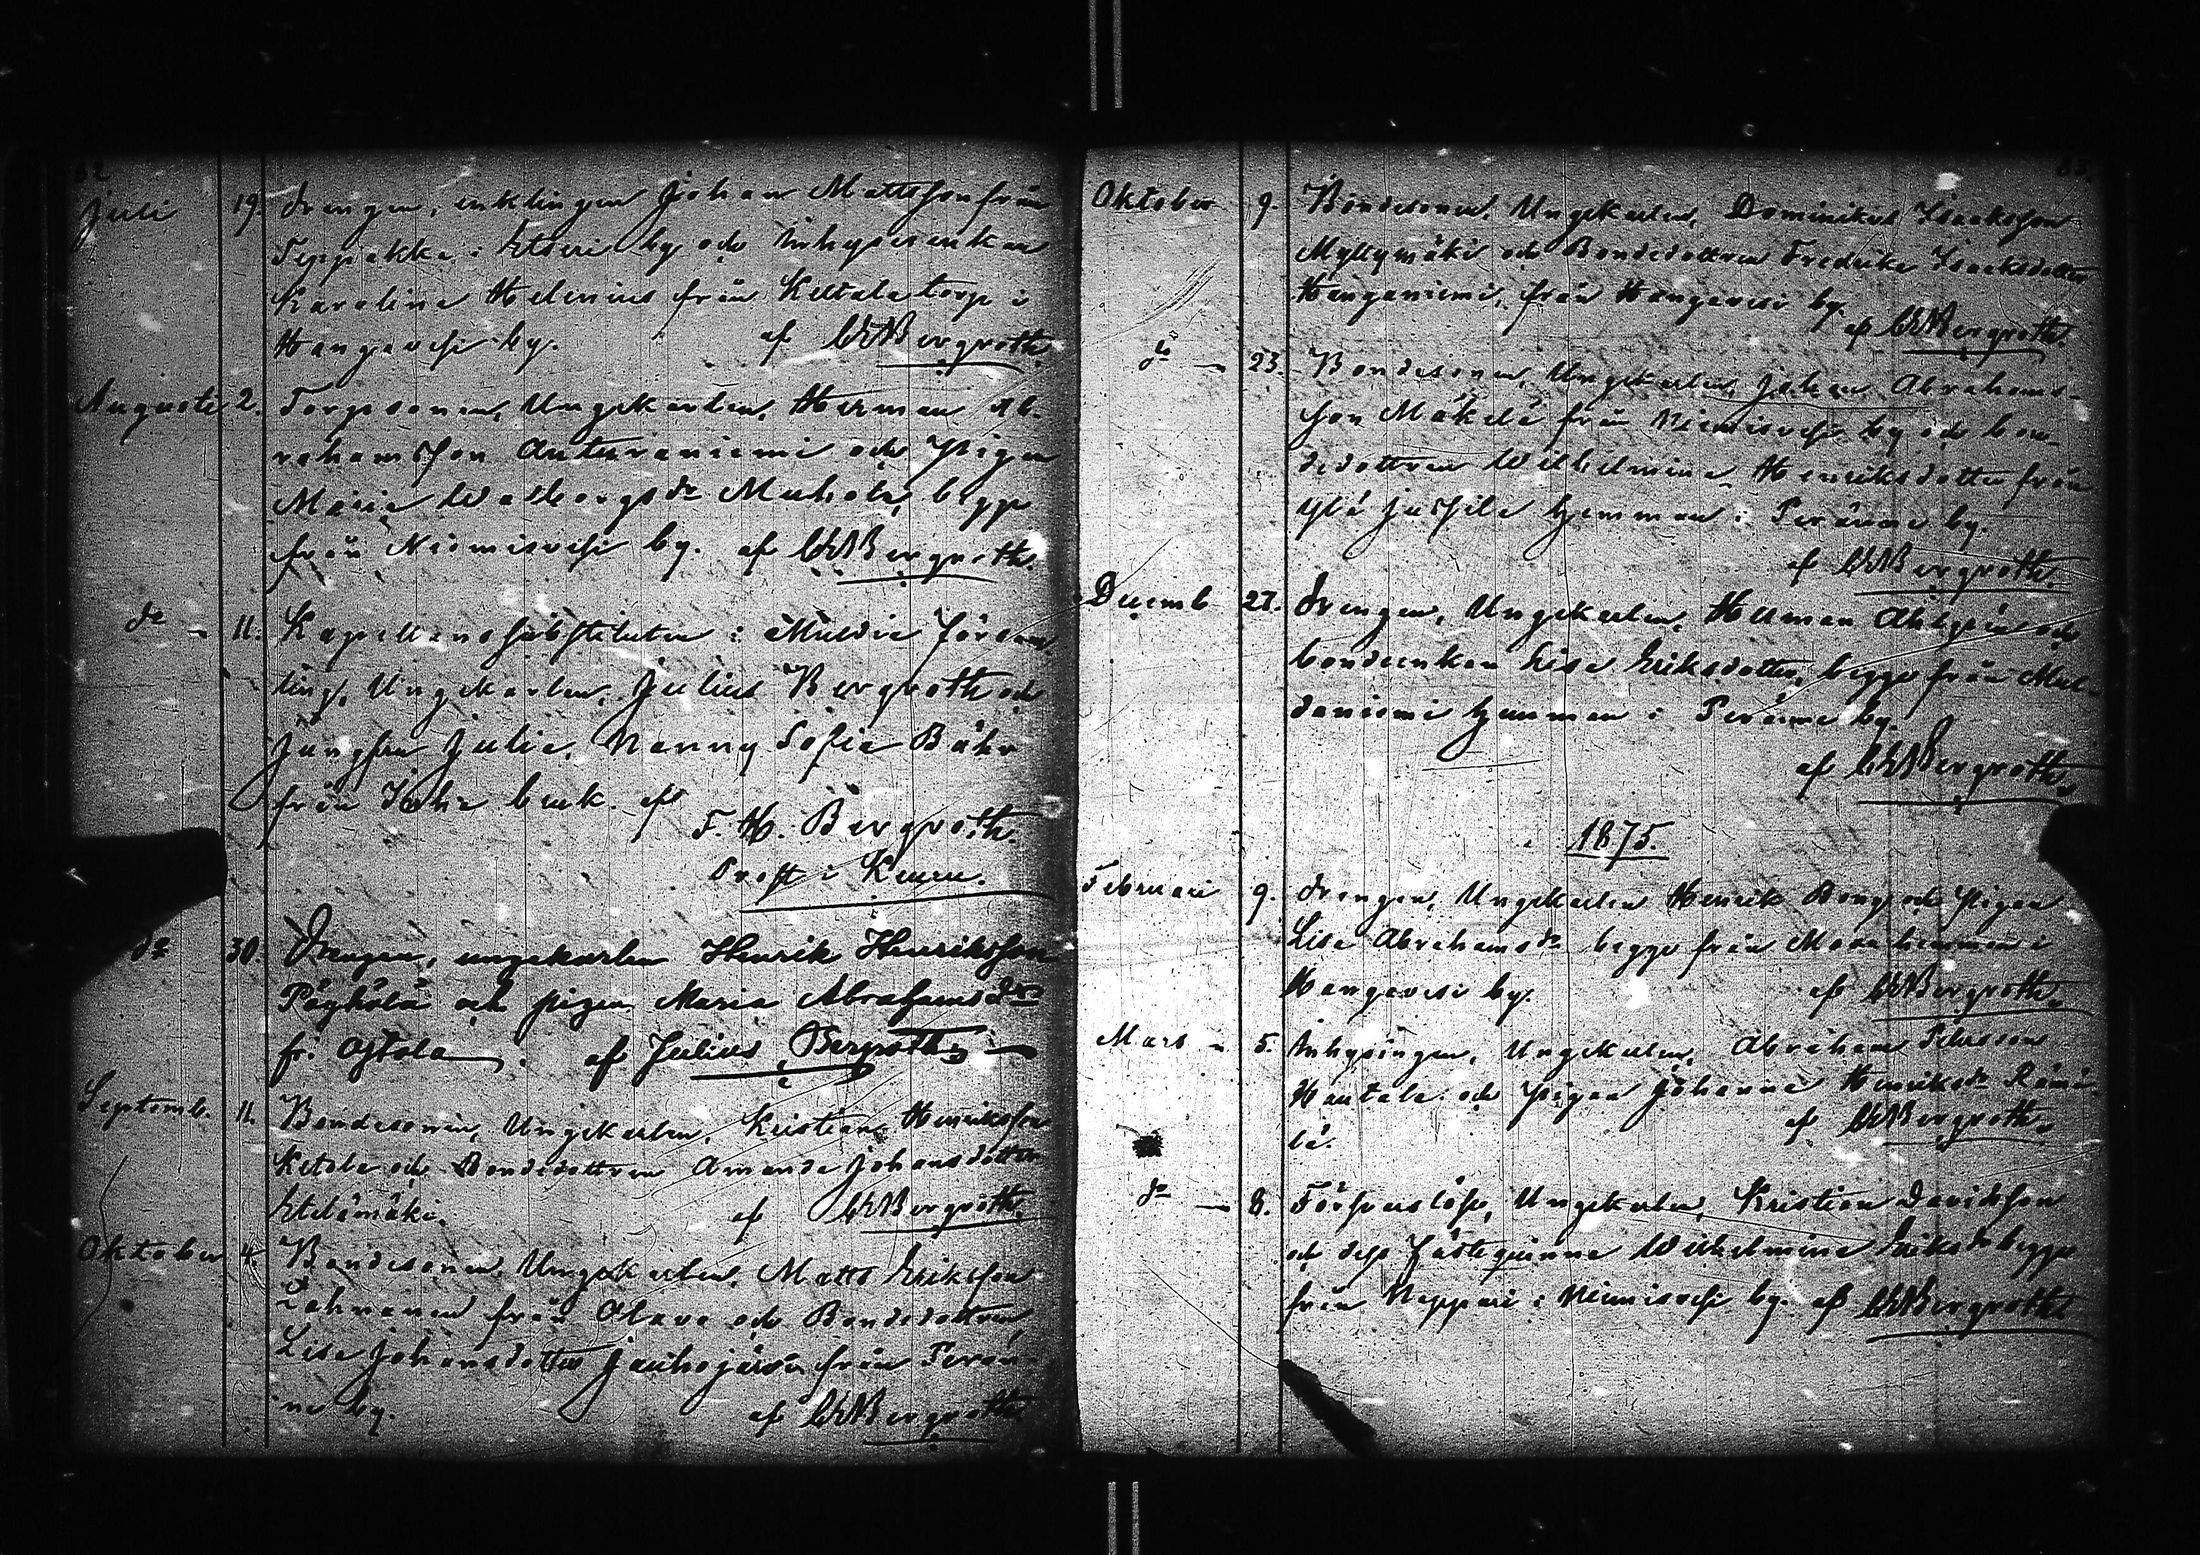 82
Juli 19. Drengen, enklingen Johan Mattsson från
i Etseri by och Inhysesenkan
Karoline Helenius från Ketala torp i
Hangavesi by. af CEBergroth.
Augusti 2. Torpsonen, Ungekarlen, Herman Ab-
rahamsson Auteraniemi och Pigan
Maria Walborgsdr Muhola, begge
från Niemisvesi by. af CEBergroth.
do - 11. Kapellanssubstituten i Multia försam
ling, Ungekarlen, Julius Bergroth och
Jungfrun Julia, Nanny Sofia Bähr
från Inha bruk. af
F. H. Bergroth.
Prost i Keuru.
do 30. Drengen, ungekarlen Henrik Henriksson
och pigan Maria Abrahamsdr
fr. Ostola. af Julius Bergroth
Septemb. 11. Bondesonen, Ungekarlen, Kristian Henriksson
Ketola och Bondedottren Amanda Johansdotter
Etelämäki. af CEBergroth.
Oktober 4. Bondesonen, Ungekarlen, Matts Eriksson
Lahnanen från Alavo och Bondedottren
Lisa Johansdotter Jauhojärvi från Perän-
ne by. af CEBergroth.
83.
Oktober 9. Bondesonen, Ungekarlen, Dominikus Isaksson
Myllymäki och Bondedottren Fredrika Isaksdotter
Hanganiemi, från Hangavesi by.
af CEBergroth.
do - 23. Bondesonen, Ungekarlen, Johan Abrahams-
son Mäkelä från Niemisvesi by och bon-
dedottren Wilhelmina Henriksdotter från
Ylä Jussila hemman i Peränne by.
af CEBergroth.
Decemb 27. Drengen, Ungekarlen, Herman Ahlgrén och
bondeenkan Lisa Eriksdotter, begge från
hemman i Peränne by.
af CEBergroth.
1875.
Februari 9. Drengen, Ungekarlen Henrik och Pigan
Lisa Abrahamsdr begge från hemman i
Hangavesi by. af CEBergroth.
Mars - 5. Inhysingen, Ungekarlen, Abraham Petersson
Hautala och Pigan Johanna Henriksdr Rämä-
lä. af CEBergroth.
do - 8. Ungekarlen, Kristian Davidsson
och dess fästeqvinna Wilhelmina Eriksdr begge
från Neppari i Niemisvesi by. af CEBergroth